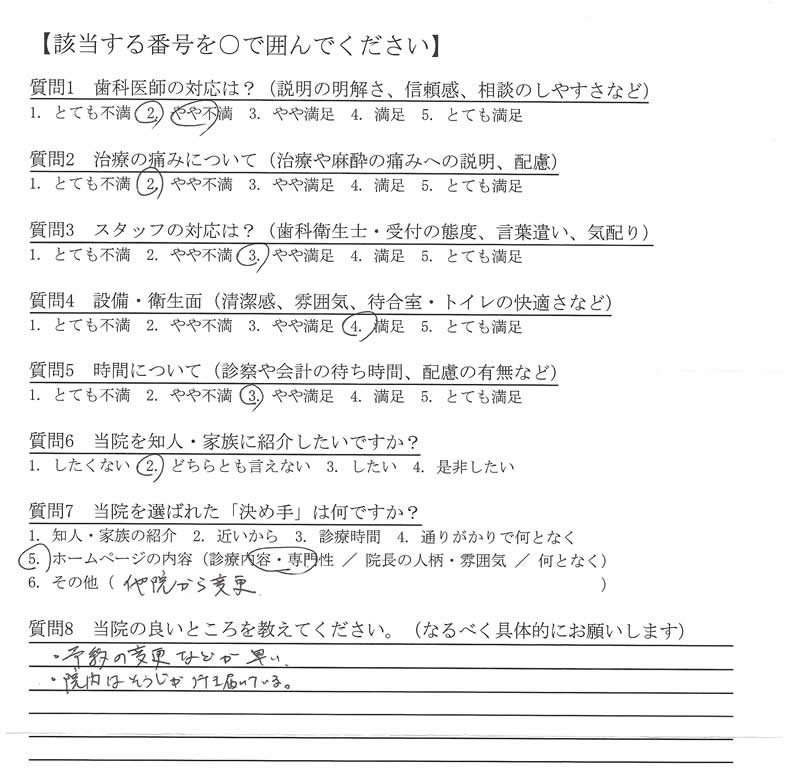 【該当する番号を○で囲んでください】
質問1 歯科医師の対応は?(説明の明解さ、信頼感、相談のしやすさなど)
1. とても不満 2. やや不満 3. やや満足 4. 満足 5. とても満足
質問2 治療の痛みについて(治療や麻酔の痛みへの説明、配慮)
1. とても不満 2. やや不満 3. やや満足 4. 満足 5. とても満足
質問3 スタッフの対応は?(歯科衛生士・受付の態度、言葉遣い、気配り)
1. とても不満 2. やや不満 3. やや満足 4. 満足 5. とても満足
質問4 設備・衛生面(清潔感、雰囲気、待合室・トイレの快適さなど)
1. とても不満 2. やや不満 3. やや満足 4. 満足 5. とても満足
質問5 時間について(診察や会計の待ち時間、配慮の有無など)
1. とても不満 2. やや不満 3. やや満足 4. 満足 5. とても満足
質問6 当院を知人・家族に紹介したいですか?
1. したくない 2. どちらとも言えない 3. したい 4. 是非したい
質問7 当院を選ばれた「決め手」は何ですか?
1. 知人・家族の紹介 2. 近いから 3. 診療時間 4. 通りがかりで何となく
5. ホームページの内容(診療内容・専門性 / 院長の人柄・雰囲気 / 何となく)
6. その他(他院から変更 )
質問8 当院の良いところを教えてください。(なるべく具体的にお願いします)
・予約の変更などが早い、
・院内はそうじが行き届いている。